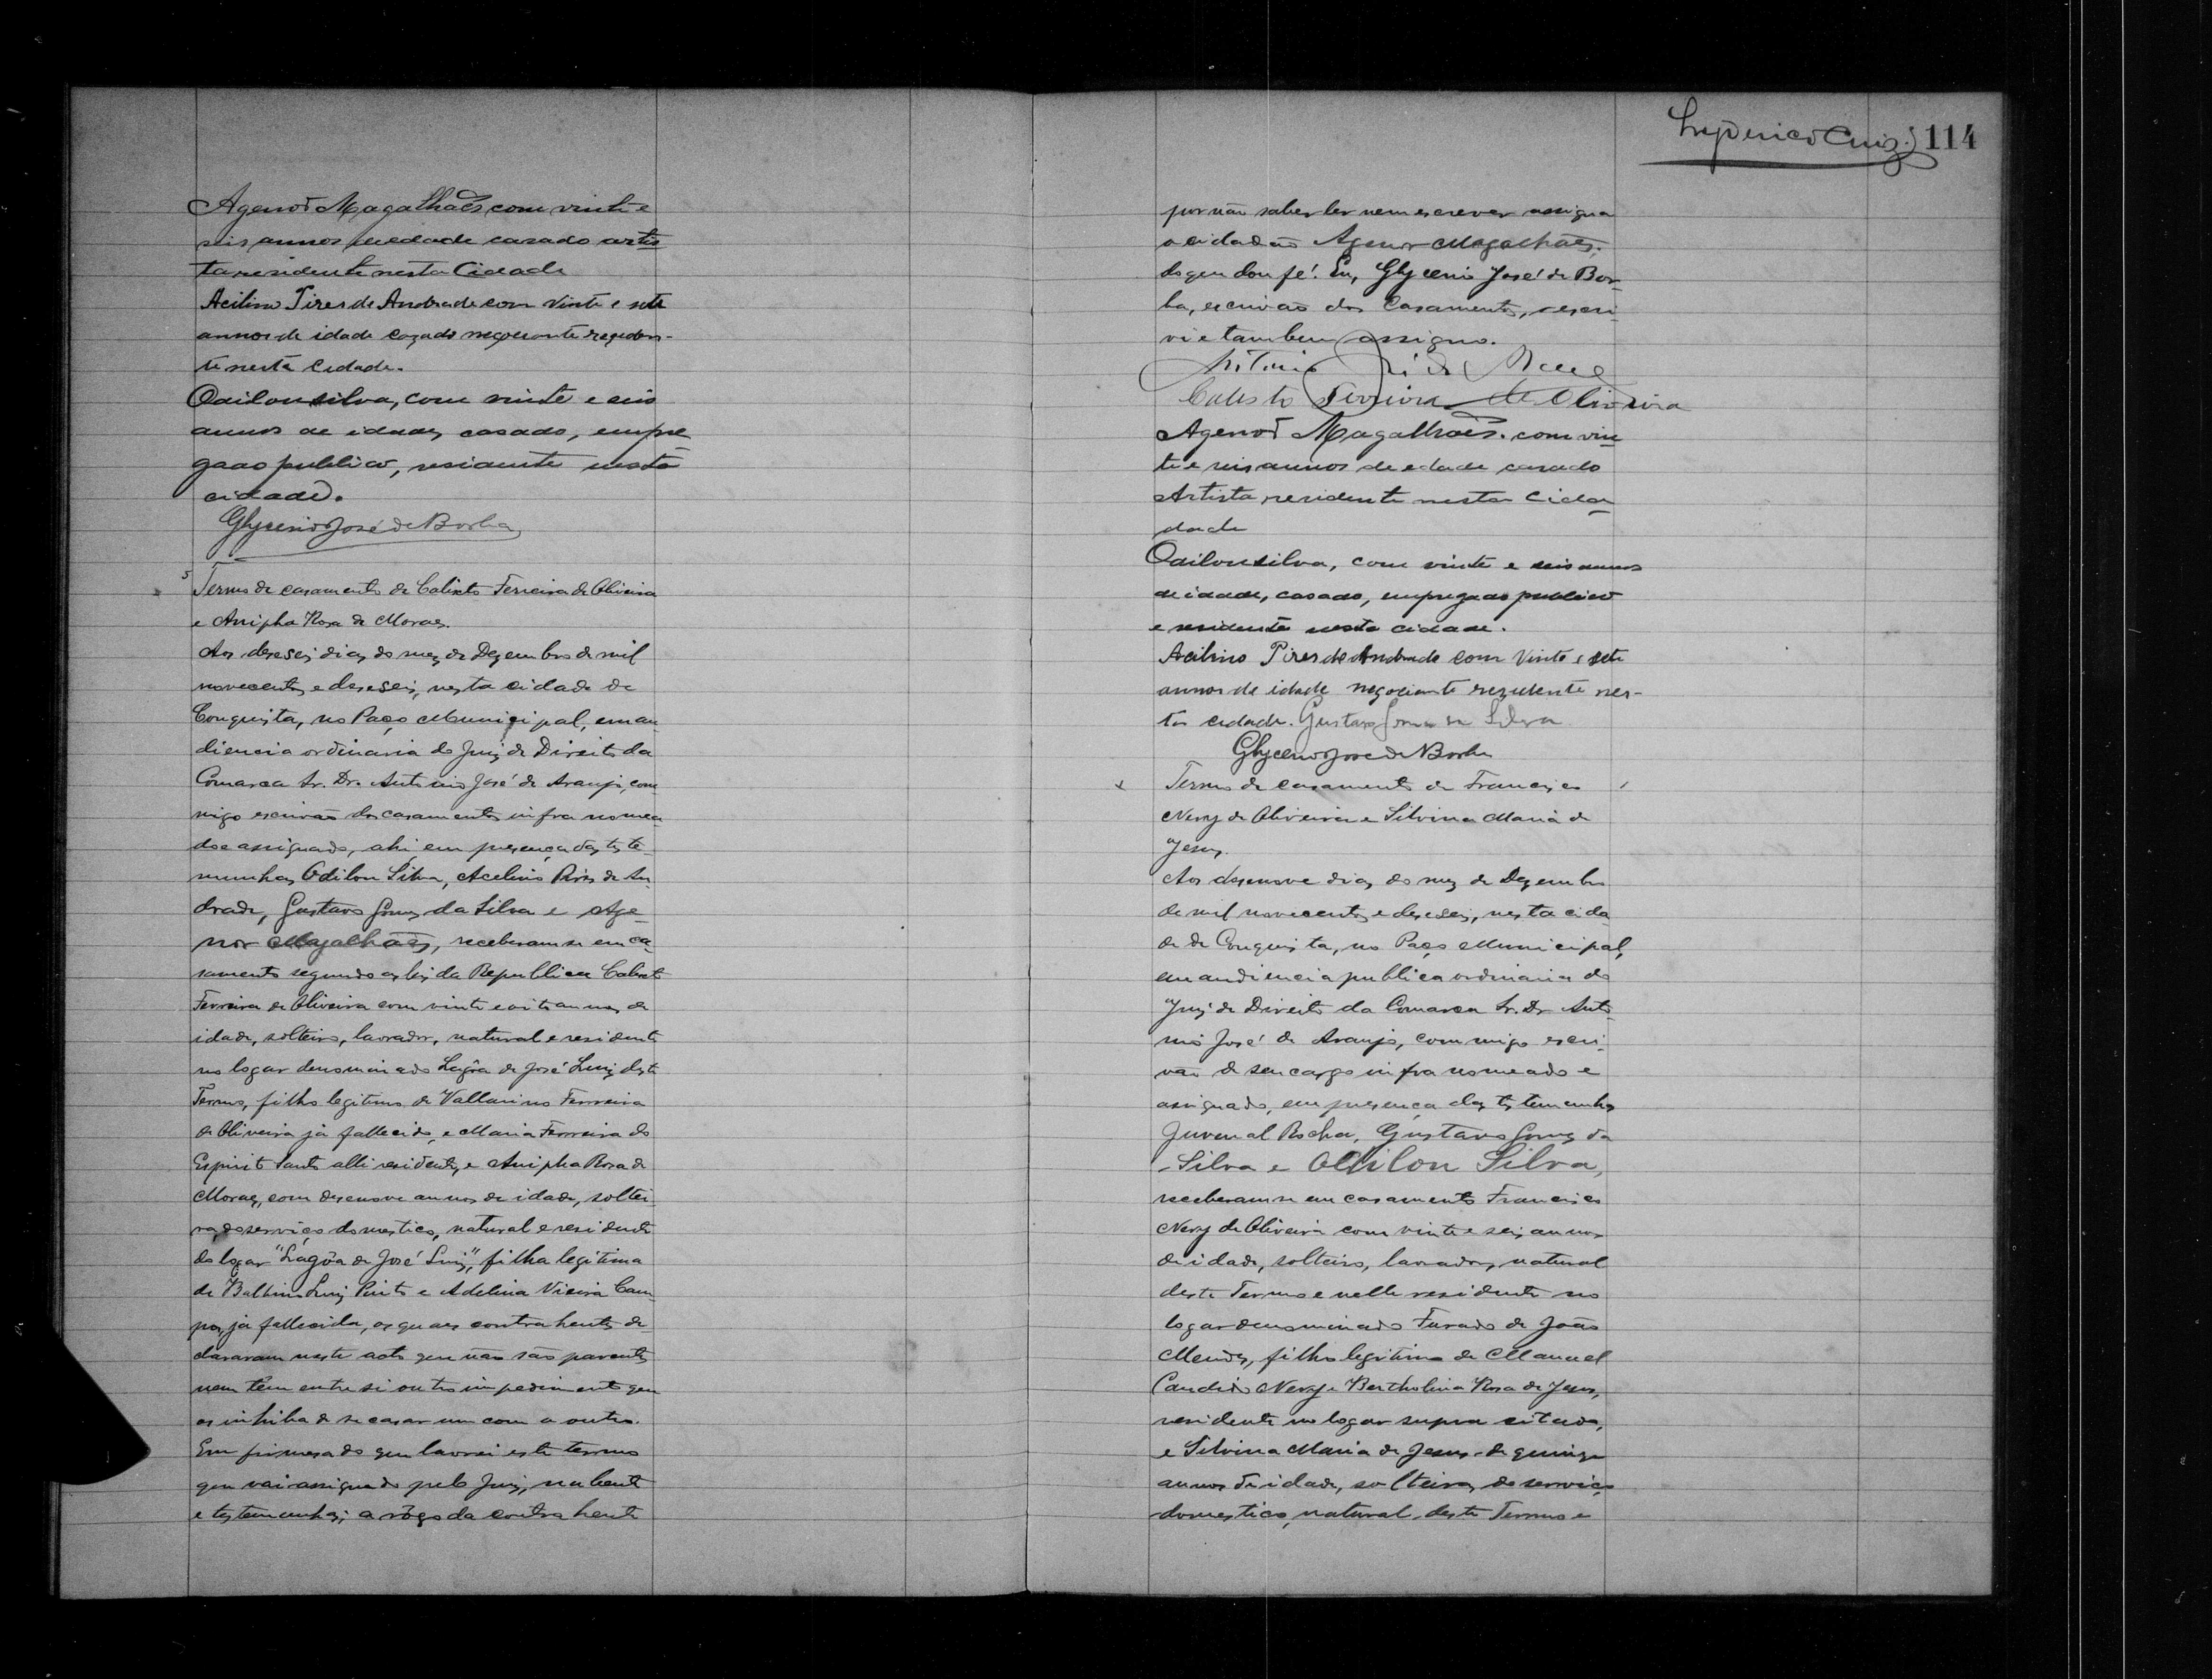 Agenor Magalhães com vinte e
seis annos de edade casado artis
ta residente nesta Cidade
Acilino Pires de Andrade com vinte e sete
annos de idade cazado negociante reziden-
te nesta cidade.
Odilon silva, com vinte e seis
annos de idade, casado, empre
gado publico, residente nesta
cidade.
Glycerio José de Borba
Termo de casamento de Calixto Ferreira de Oliveira
e Anipha Rosa de Moraes.
Aos deseseis dias do mez de Dezembro de mil
novecentos e deseseis, nesta cidade de
Conquista, no Paço Municipal, em au
diencia ordinaria do Juiz de Direito da
Comarca Sr. Dr. Antonio José de Araujo, com
migo escrivão dos casamentos infra nomea
do e assignado, ahi em presença das teste
munhas Odilon Silva, Acelino Pires de An
drade, Gustavo Gomes da Silva e Age
nor Magalhães, receberam se em ca
samento segundo as leis da Republica Calixto
Ferreira de Oliveira com vinte e oito annos de
idade, solteiro, lavrador, natural e residente
no logar denominado Lagôa de José Luiz deste
Termo, filho legitimo de Vallarino Ferreira
de Oliveira já fallecido, e Maria Ferreira do
Espirito Santo alli residente, e Anipha Rosa de
Moraes, com desenove annos de idade, soltei
ra, do serviço domestico, natural e residente
do logar "Lagôa de José Luiz", filha legitima
de Balbino Luiz Pinto e Adelina Vieira Cam
pos, já fallecida, os quaes contrahentes de
clararam neste acto que não são parentes
nem têm entre si outro impedimento que
os inhiba de se casar um com o outro.
Em firmesa do que lavrei este termo
que vai assignado pelo Juiz, nubente
e testemunhas; a rôgo da contrahente
114
por não saber ler nem escrever assigna
o cidadão Agenor Magalhães;
do que dou fé. Eu, Glycerio José de Bor
ba, escrivão dos Casamentos, escre
vi e tambem assigno.
Calisto Ferreira de Oliveira
Agenor Magalhães. com vin
te e seis annos de edade casado
Artista, residente nesta Cida
dade
Odilon silva, com vinte e seis annos
de idade, casado, empregado publico
e residente nesta cidade.
Acilino Pires de Andrade com Vinte e sete
annos de idade negociante rezidente nes-
ta cidade. Gustavo Gomes da Silva
Glycerio José de Borba
Termo de casamento de Francisco
Nery de Oliveira e Silvina Maria de
Jesus.
Aos desenove dias do mez de Dezembro
de mil novecentos e deseseis, nesta cida
de de Conquista, no Paço Municipal,
em audiencia publica ordinaria do
Juiz de Direito da Comarca Sr. Dr. Anto
nio José de Araujo, commigo escri
vão de seu cargo infra nomeado e
assignado, em presença das testemunhas
Juvenal Rocha, Gustavo Gomes da
Silva e Odilon Silva,
receberam se em casamento Francisco
Nery de Oliveira com vinte e seis annos
de idade, solteiro, lavrador, natural
deste Termo e nelle residente no
logar denominado Furado de João
Mendes, filho legitimo de Manuel
Candido Nery e Bertholina Rosa de Jesus,
residente no logar supra citado,
e Silvina Maria de Jesus de quinze
annos de idade, solteira, do serviço
domestico, natural deste Termo e